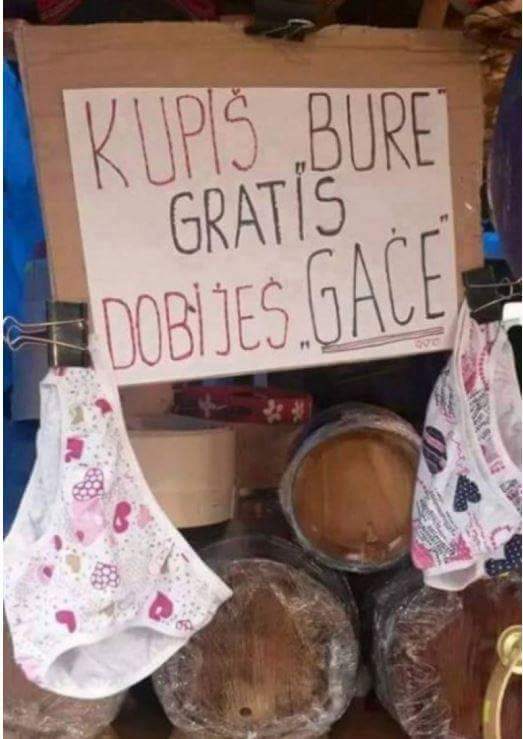 KUPIŠ „BURE"
GRATIS
DOBIJEŠ „GAĆE"